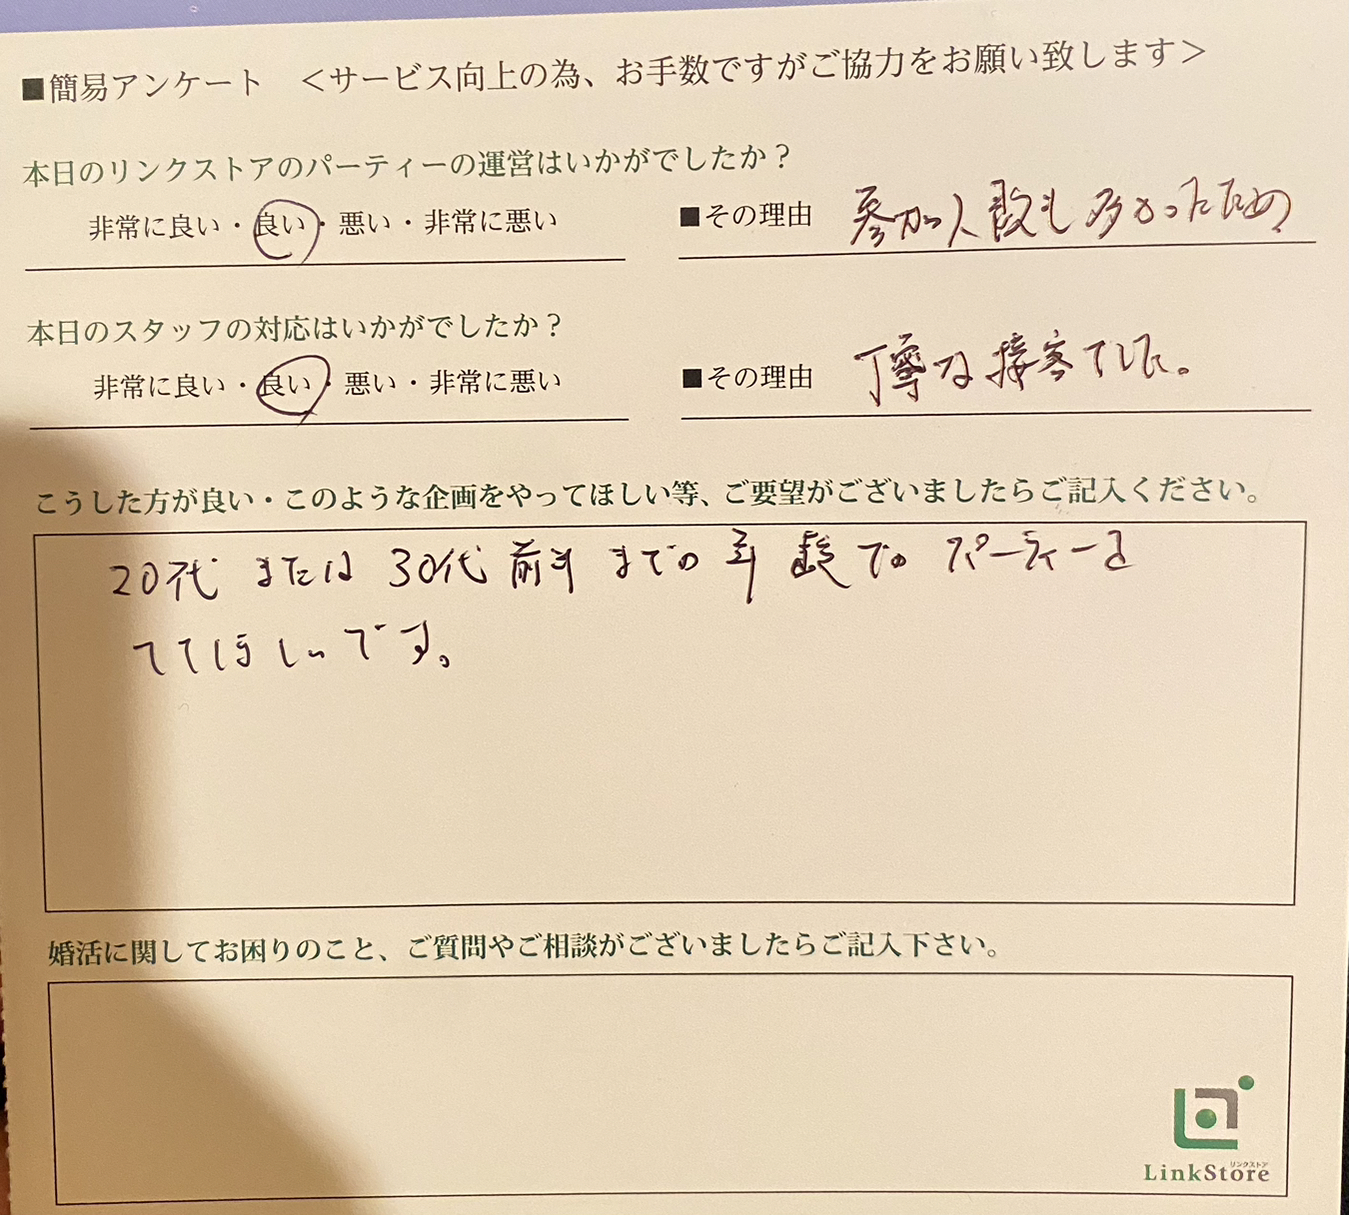 ■簡易アンケート <サービス向上の為、お手数ですがご協力をお願い致します>
本日のリンクストアのパーティーの運営はいかがでしたか?
非常に良い・良い・悪い・非常に悪い ■その理由 参加人数も多かったため
本日のスタッフの対応はいかがでしたか?
非常に良い・良い・悪い・非常に悪い ■その理由 丁寧な接客でした。
こうした方が良い・このような企画をやってほしい等、ご要望がございましたらご記入ください。
20代または30代前半までの年齢でのパーティーを
してほしいです。
婚活に関してお困りのこと、ご質問やご相談がございましたらご記入下さい。
リンクストア
LinkStore